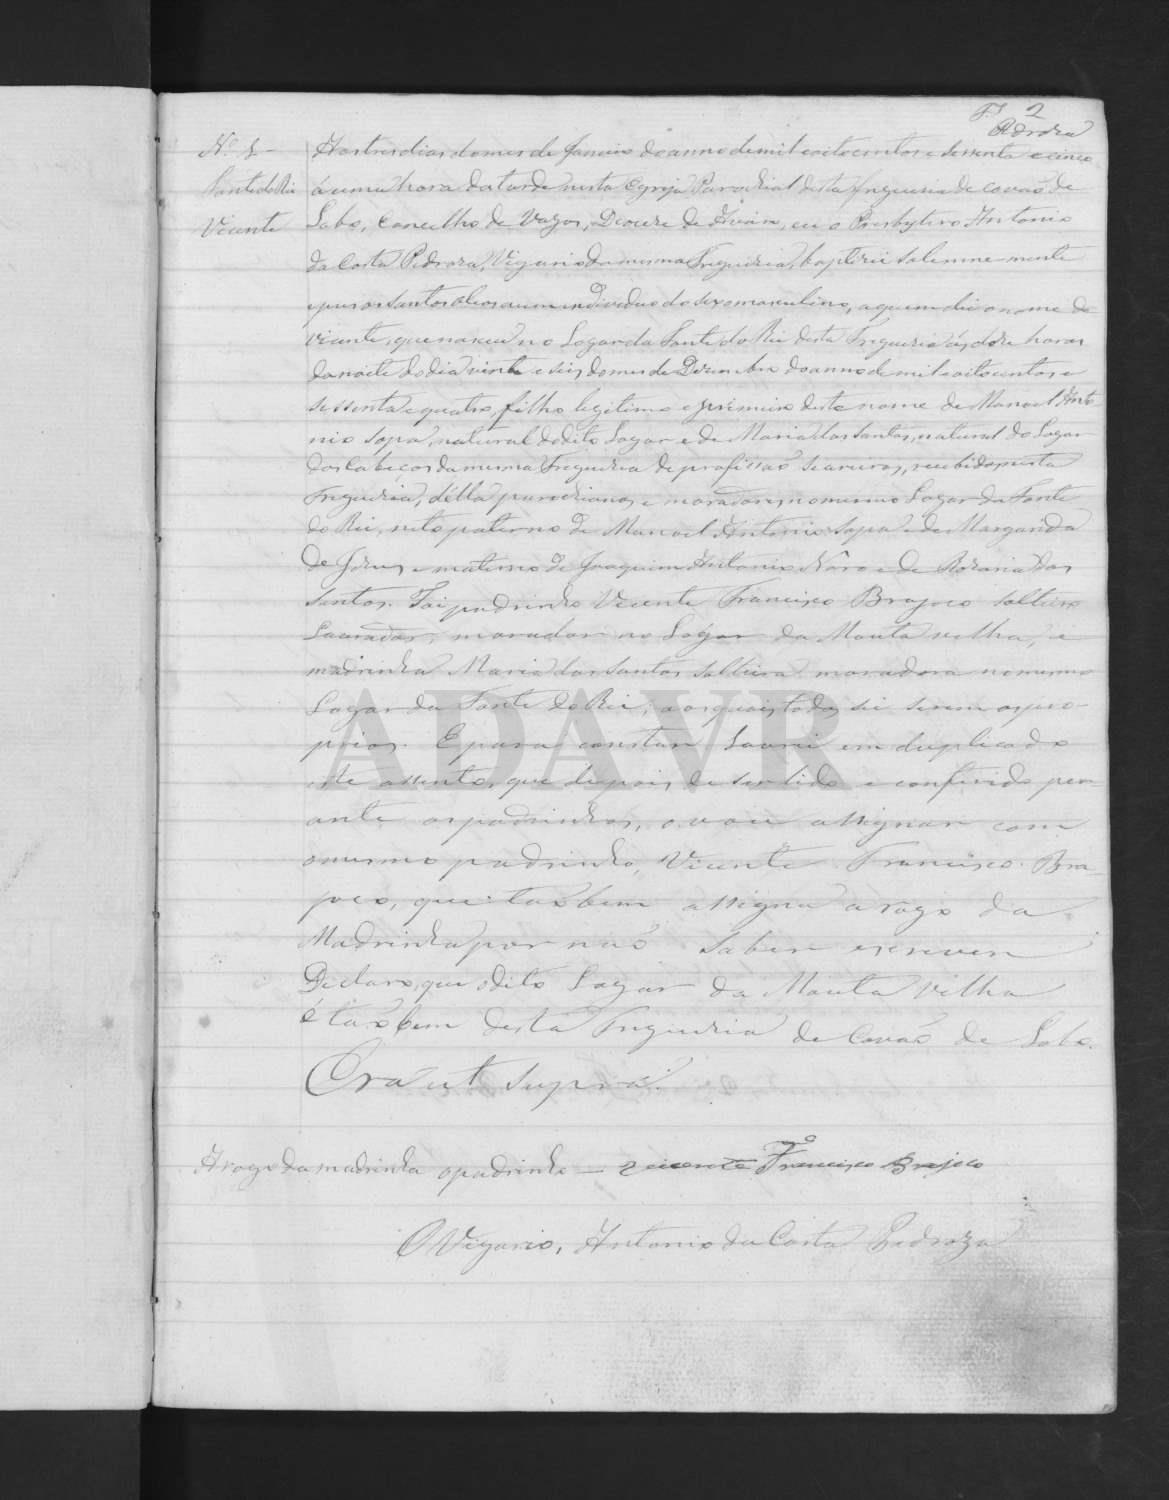 Fl 2
Pedroza
Nº 1
Fonte do Rei
Vicente
Aos tres dias do mes de Janeiro do anno de mil oitocentos e sessenta e cinco
á uma hora da tarde nesta Egreja Parochial desta freguezia de Covaõ de
Lobo, Concelho de Vagos, Diocese de Aveiro, eu o Presbytero Antonio
da Costa Pedroza, Vigario da mesma Freguezia, baptizei solemne-mente
e puz os santos oleos a um individuo do sexo masculino, a quem dei o nome de
Vicente, que nasceu no Logar da Fonte do Rei desta Freguezia ás doze horas
da noite do dia vinte e seis do mes de Dezembro do anno de mil oitocentos e
sessenta e quatro, filho legitimo e primeiro deste nome de Manoel Anto-
nio Sopa, natural do dito Logar e de Maria dos Santos, natural do Logar
dos Cabeços da mesma Freguezia de profissaõ seareiros, recebidos nesta
Freguezia, d'élla parochianos, e moradores no mesmo Logar da Fonte
do Rei, neto paterno de Manoel Antonio Sopa e de Margarida
de Jezus, e materno de Joaquim Antonio Nóro e de Rozaria dos
Santos. Foi padrinho Vicente Francisco Brajoco solteiro
Lavrador, morador no Logar da Mouta velha, e
madrinha Maria dos Santos solteira moradora no mesmo
Logar da Fonte do Rei; aos quaes todos sei serem os pro-
prios. E para constar lavrei em duplicado
este assento, que depois de ser lido e conferido per-
ante os padrinhos, o vou assignar com
o mesmo padrinho, Vicente Francisco Bra-
joco, que taõbem assigna a rogo da
Madrinha por naõ saber escrever
Declaro, que o dito Logar da Mouta velha
é taõbem desta Freguezia de Covaõ de Lobo.
Era ut supra.
A rogo da madrinha o padrinho — Vicente Francisco Brajoco
O Vigario, Antonio da Costa Pedroza
ADAVR